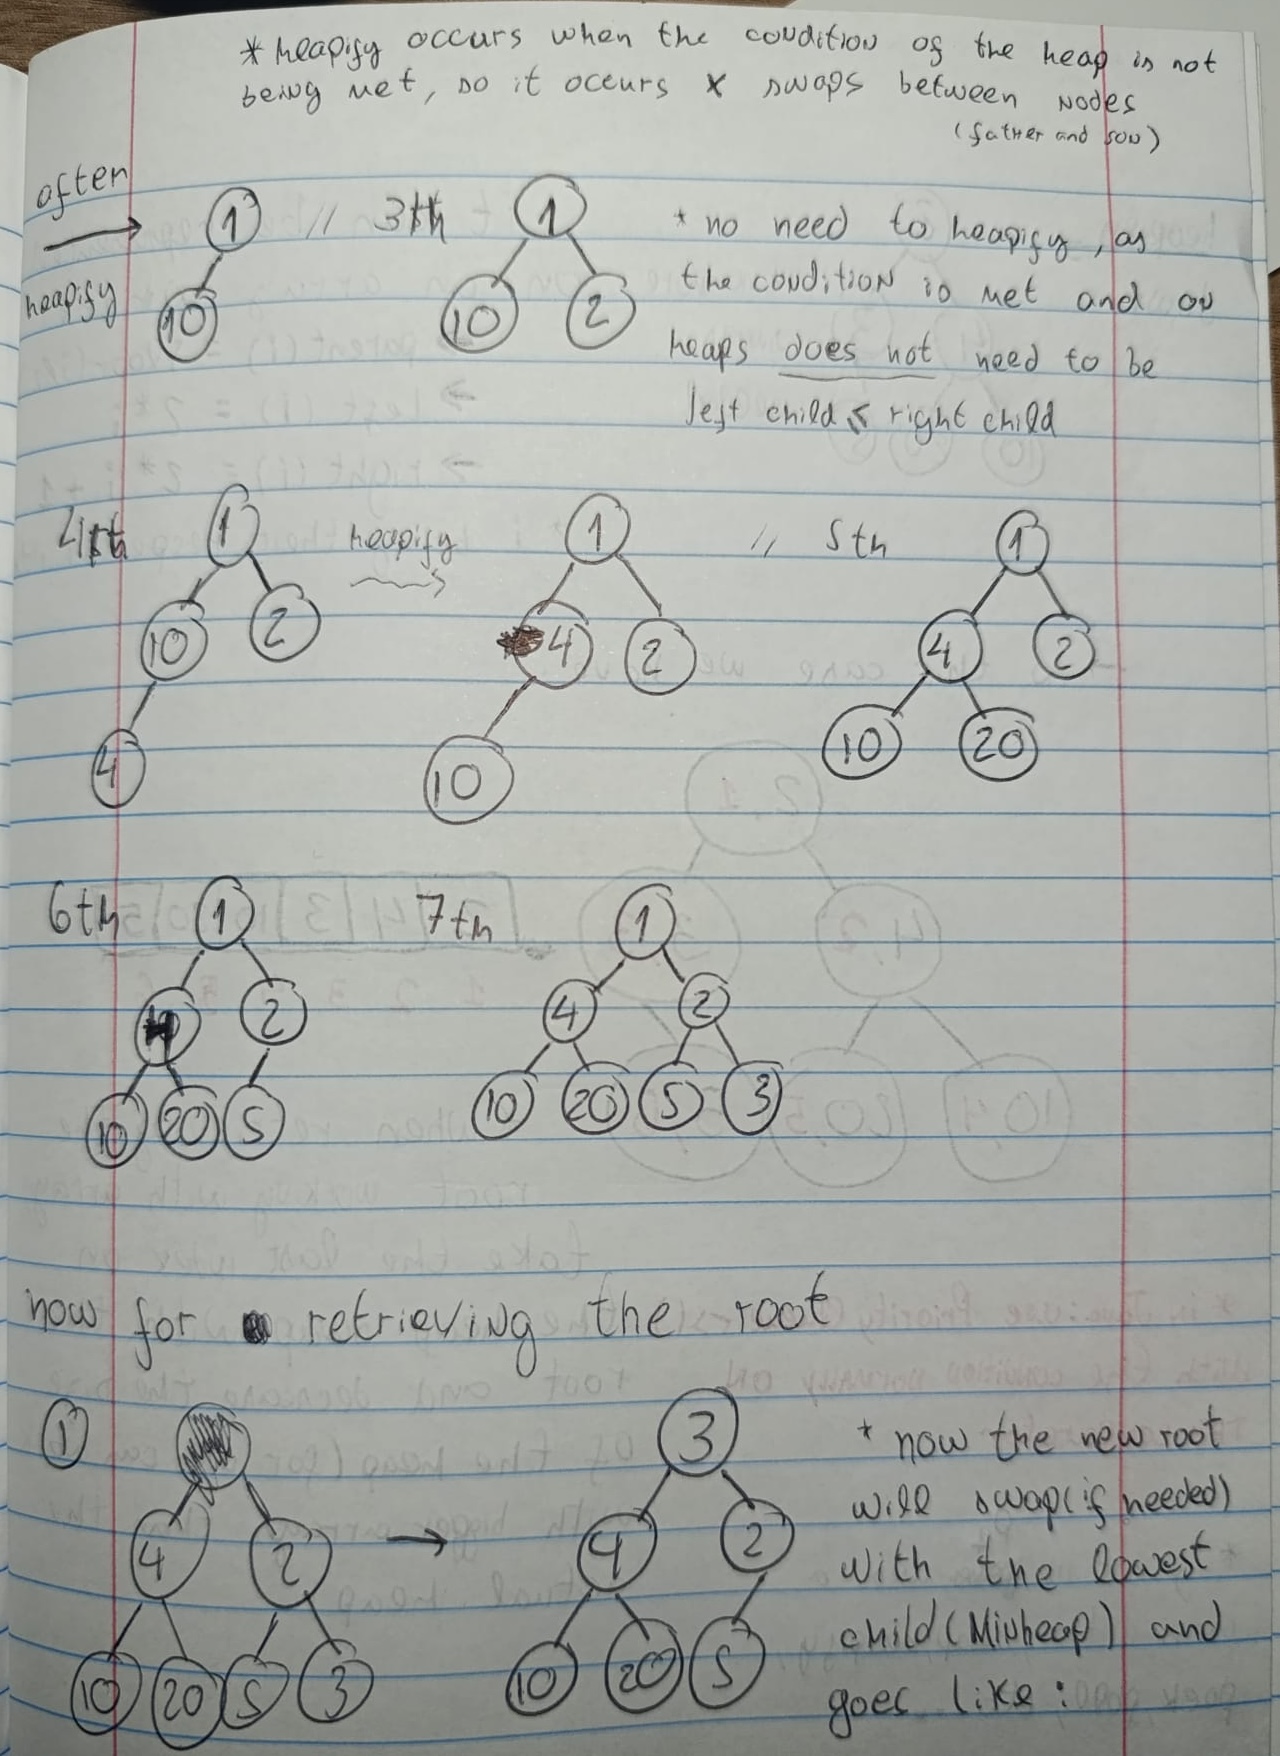 * heapify occurs when the condition of the heap is not
being met, so it occurs x swaps between nodes
(father and son)
after
heapify
1 // 3th 1
10 10 2
* no need to heapify, as
the condition is met and on
heaps does not need to be
left child ≤ right child
4th 1 heapify 1 // 5th 1
10 2 4 2 4 2
4 10 10 20
6th 1 7th 1
4 2 4 2
10 20 5 10 20 5 3
now for retrieving the root
1 3
4 2 4 2
10 20 5 3 10 20 5
* now the new root
will swap (if needed)
with the lowest
child (Minheap) and
goes like: